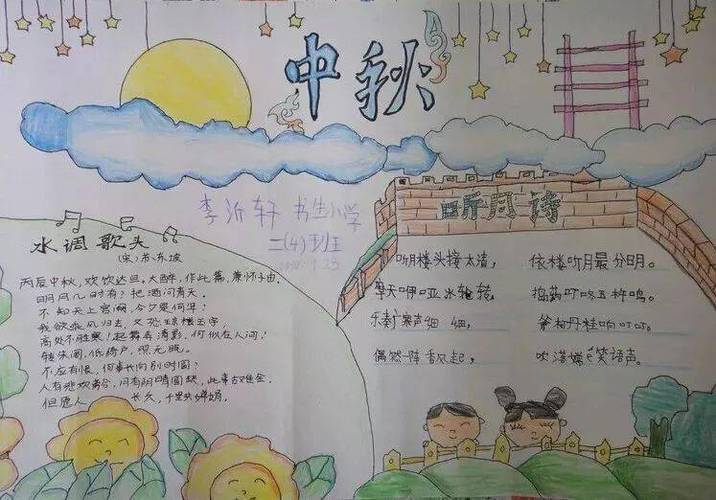 中秋
李沂轩 书生小学
二(4)班
水调歌头
(宋)苏东坡
丙辰中秋，欢饮达旦。大醉，作此篇，兼怀子由。
明月几时有？把酒问青天。
不知天上宫阙，今夕是何年？
我欲乘风归去，又恐琼楼玉宇，
高处不胜寒！起舞弄清影，何似在人间！
转朱阁，低绮户，照无眠。
不应有恨，何事长向别时圆？
人有悲欢离合，月有阴晴圆缺，此事古难全。
但愿人 长久，千里共婵娟。
听月诗
听楼头接太清， 依楼听月最分明。
摩天咿哑冰轮转， 捣药叮咚玉杵鸣。
乐奏广寒声细细， 斧柯丹桂响叮叮。
偶然一阵香风起， 吹落嫦娥笑语声。